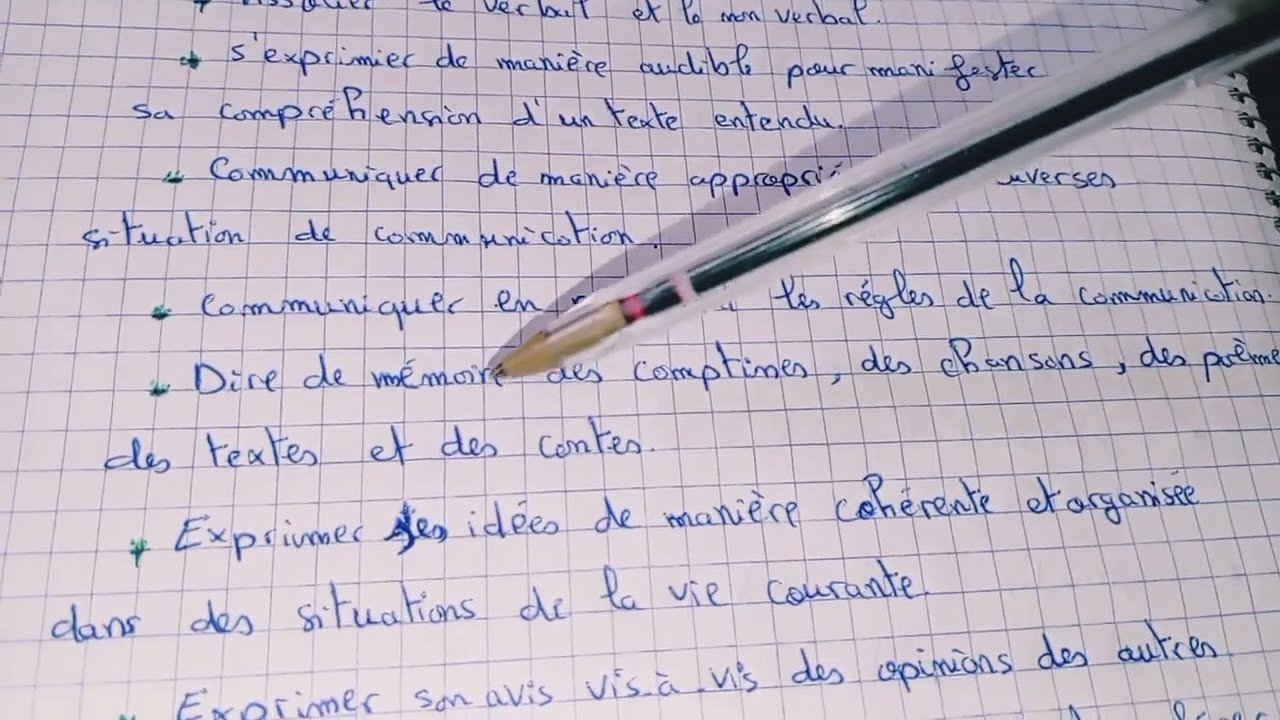 le verbal et le non verbal.
s'exprimer de manière audible pour manifester
sa compréhension d'un texte entendu.
Communiquer de manière
situation de communication.
Communiquer en les régles de la communication.
Dire de mémoire des comptines, des chansons, des
des textes et des contes.
Exprimer ses idées de manière cohérente et organisée
dans des situations de la vie courante
Exprimer son avis vis-à-vis des opinions des autres